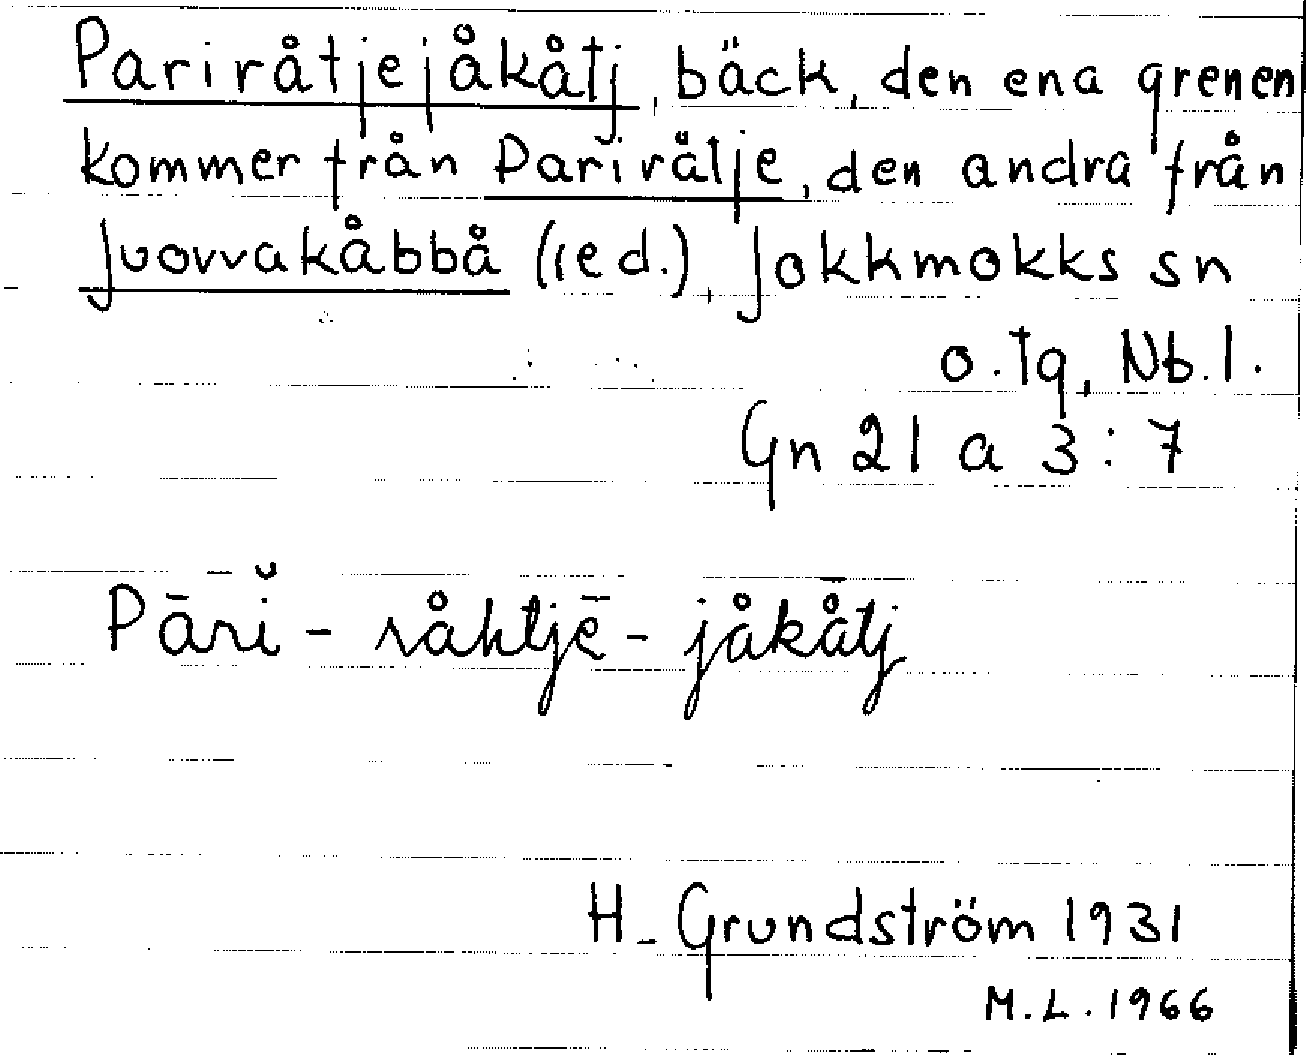 Pariråtjejåkåtj, bäck, den ena grenen
kommer från Pariråtje, den andra från
Juovvakåbbå (ied.), Jokkmokks sn
o. tg, Nb. l.
Gn 21 a 3:7
Pārĭ - råhtjē - jåkåtj
H. Grundström 1931
M.L. 1966